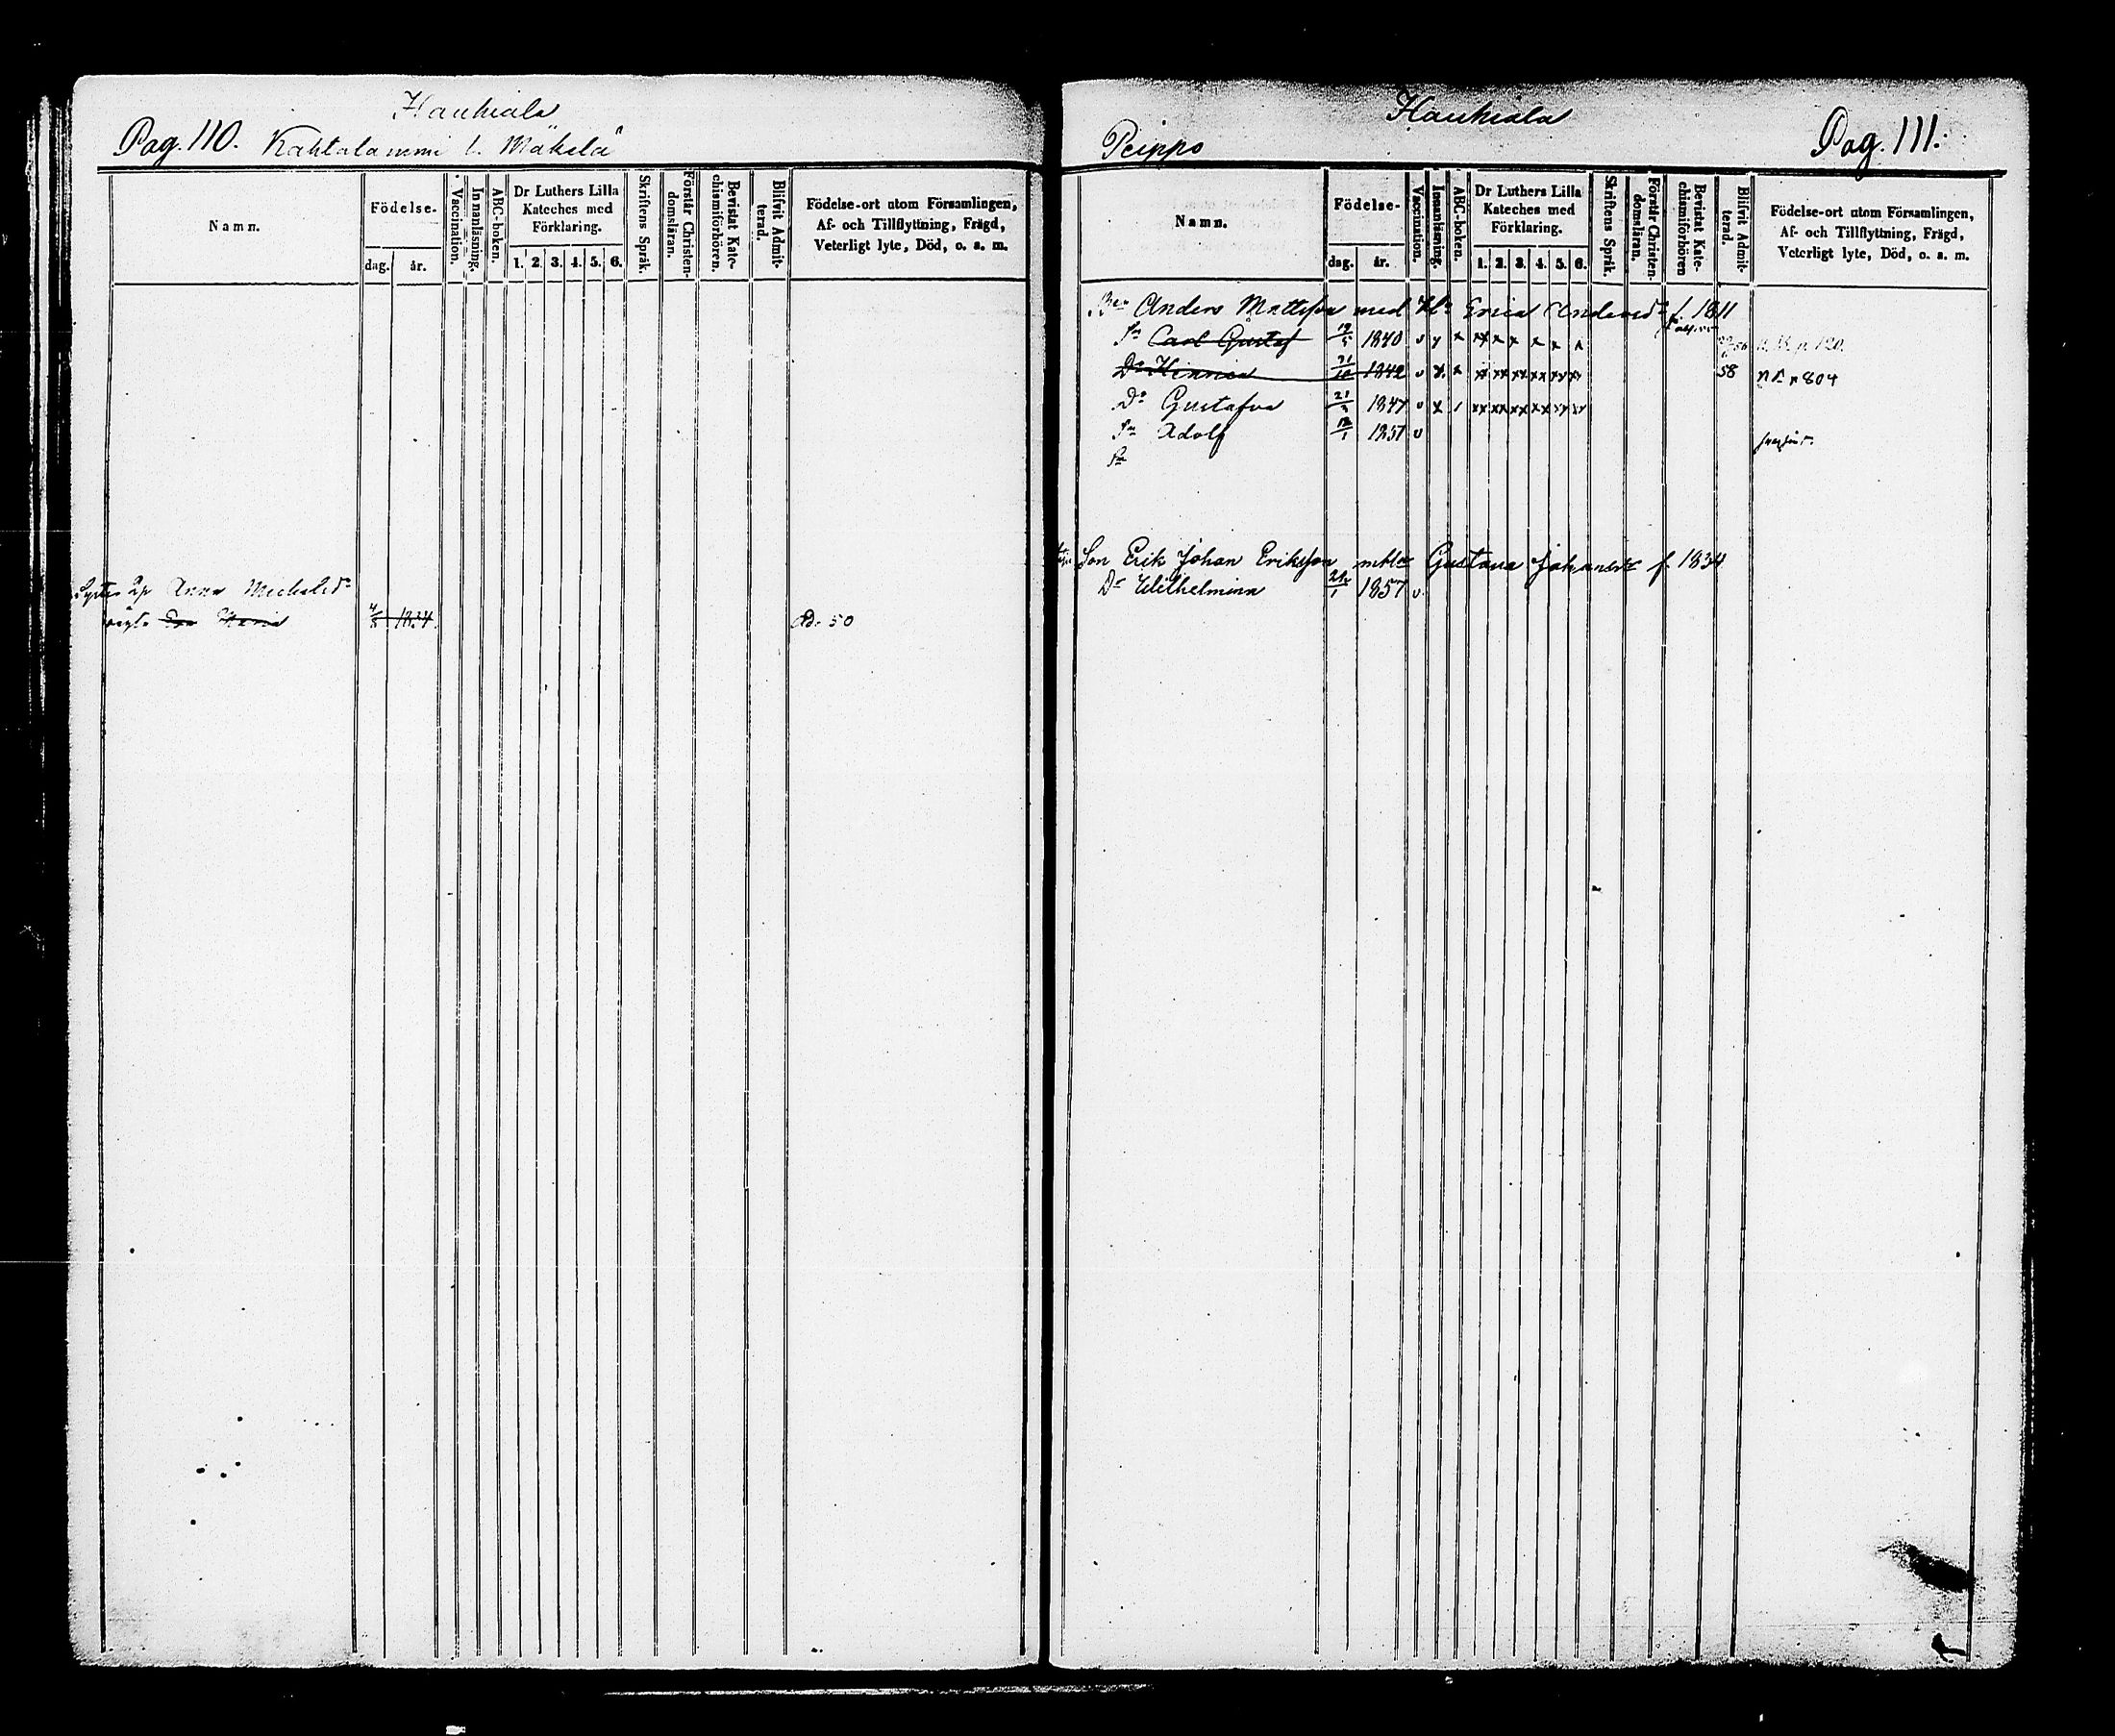 Hauhiala
Pag. 110. Kahtalammi l. Mäkelä
Namn.
Födelse-
dag. år.
Vaccination.
Innanläsning.
ABC-boken.
Dr Luthers Lilla Kateches med Förklaring.
1. 2. 3. 4. 5. 6.
Skriftens Språk.
Förstår Christendomsläran.
Bevistat Katechismiförhören.
Blifvit Admitterad.
Födelse-ort utom Församlingen,
Af- och Tillflyttning, Frägd,
Veterligt lyte, Död, o. s. m.
Anna Michelsd:r
Maria 1834 Ad. 50
Hauhiala
Peippo Pag. 111.
Namn.
Födelse-
dag. år.
Vaccination.
Innanläsning.
ABC-boken.
Dr Luthers Lilla Kateches med Förklaring.
1. 2. 3. 4. 5. 6.
Skriftens Språk.
Förstår Christendomsläran.
Bevistat Katechismiförhören
Blifvit Admitterad.
Födelse-ort utom Församlingen,
Af- och Tillflyttning, Frägd,
Veterligt lyte, Död, o. s. m.
Anders Mattsson med Erica Andersd:r f. 1811
Sn Carl Gustaf 19/5 1840 v x x xx x x x x x
Dr Henrica 31/10 1842 v x x xx xx xx xx xx xx 58 804
Dr Gustafva 21/3 1847 v x xx xx xx xx xx xx
Sn Adolf 1851 v
Sn
Son Erik Johan Eriksson Gustava Johansd:r f 1834
Dr Wilhelmina 1857 v